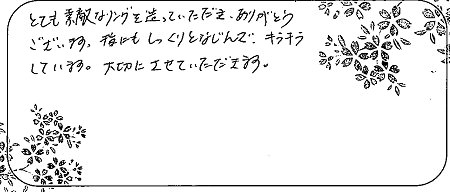 とても素敵なリングを造っていただき、ありがとう
ございます。指にもしっくりとなじんで、キラキラ
しています。大切にさせていただきます。